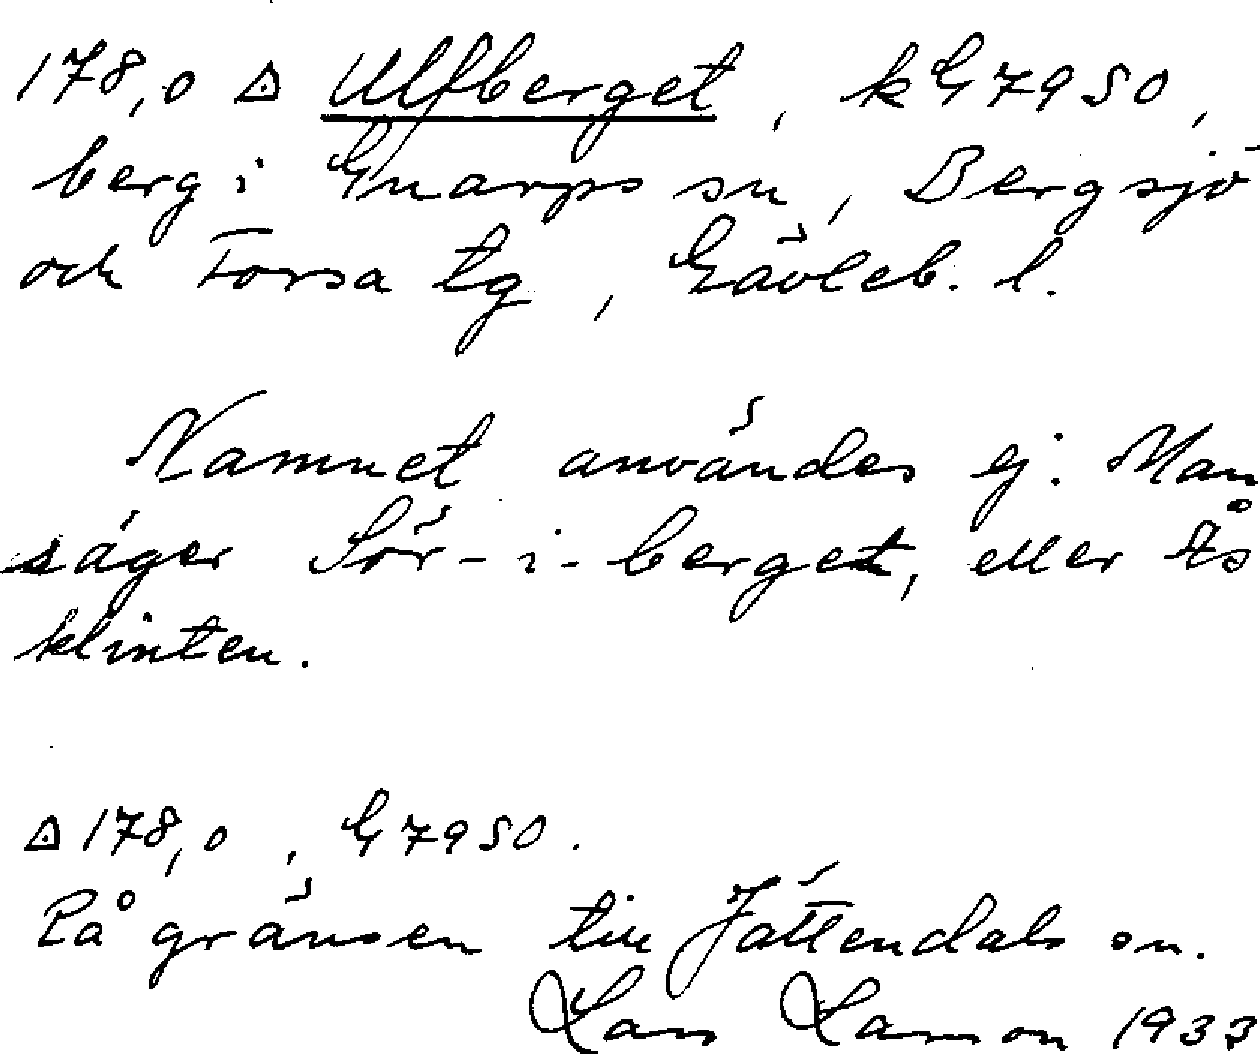 178,0 △ Ulfberget, kG7950,
berg i Gnarps sn, Bergsjö
och Forsa tg, Gävleb. l.
Namnet användes ej. Man
säger Sör-i-berget, eller Ås
klinten.
△ 178,0, G7950.
På gränsen till Jättendals sn.
Lars Larsson 1933